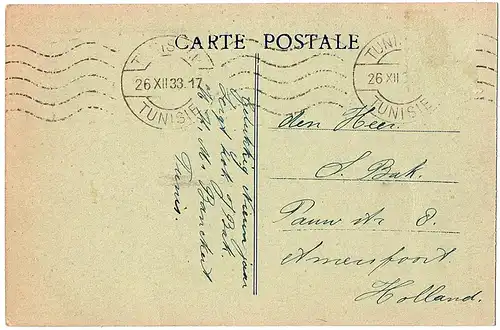 CARTE POSTALE
TUNIS
26 XII 33.17
TUNISIE
TUNIS
26 XII
TUNISIE
Gelukkig Nieuw jaar
Kok
M. Banckert
Tunis.
den Heer
S. Bak.
Pauw str 8.
Amersfoort.
Holland.